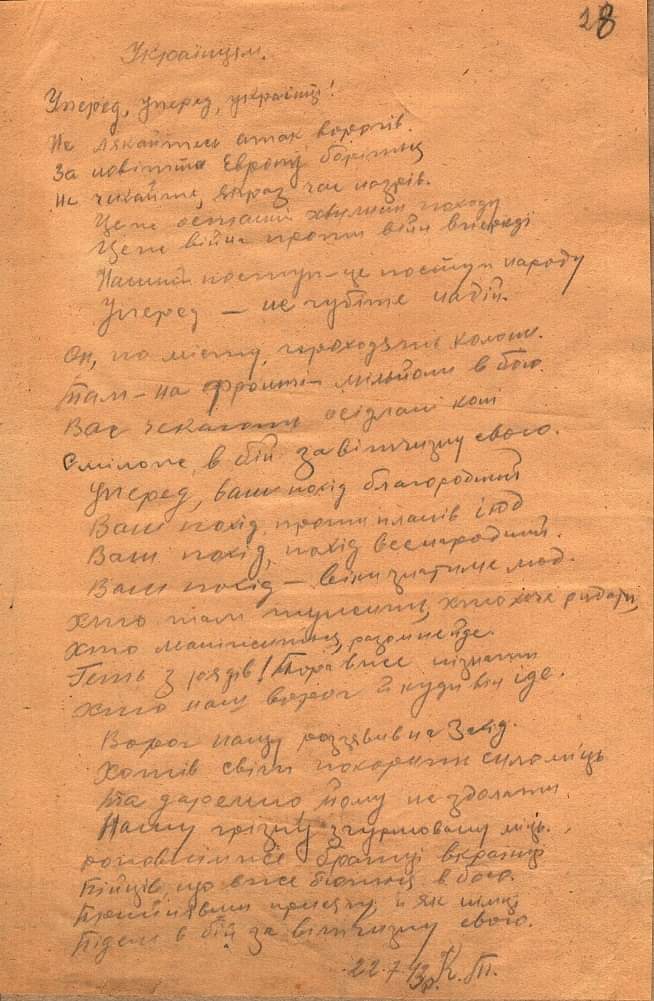 28
Українцям.
Уперед, уперед, українці!
Не лякайтесь атак ворогів.
За новітню Европу боріться
Не чекайте, якраз час назрів.
Це не останні хвилини походу
Це не війна проти війн впереді
Наший поступ – це поступ народу
Уперед – не губіте надій.
Он, по місту, проходять колони.
Там – на фронті – мільйони в бою.
Вас чекають осідлані коні
Сміло, в бій за вітчизну свою.
Уперед, ваш похід благородний
Ваш похід проти планів
Ваш похід, похід всенародний.
Ваш похід – віки знатиме люд.
Хто там тужить, хто хоче ридати,
Хто разом не йде.
Геть з рядів! Пора вже пізнати
Хто наш ворог й куди він іде.
Ворог пащу роззявив на Захід.
Хотів світ покорити силоміць
Та даремно йому не здолати
Нашу грізну згуртовану міць.
браття українці
що вже б'ються в бою.
Прийнявши присягу, й як
Підем в бій за вітчизну свою.
22.7.43р. К. Т.